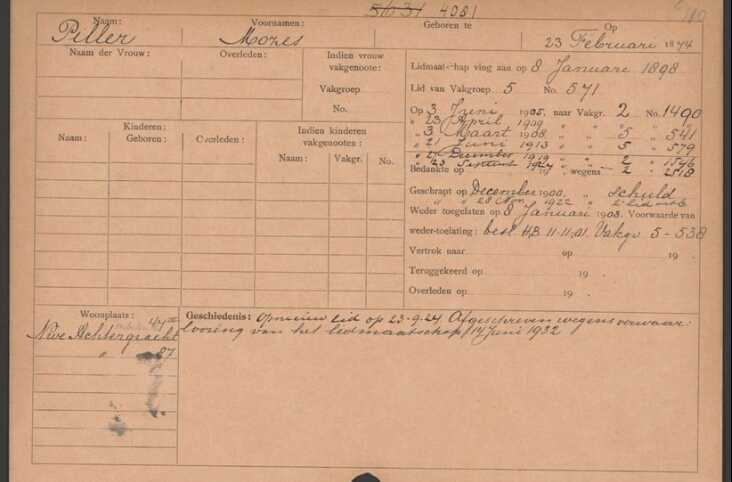 510 31 4081
Naam: Voornamen: Geboren te Op
Piller Mozes 23 Februari 1874
Naam der Vrouw: Overleden: Indien vrouw vakgenoote:
Vakgroep
No.
Lidmaatschap ving aan op 8 Januari 1898
Lid van Vakgroep 5 No. 571
Op 3 Juni 1905, naar Vakgr. 2 No. 1490
" 23 April 1909 " "
" 3 Maart 1908 " " 5 " 541
" 21 Juni 1913 " " 5 " 579
" 2 December 1919 " " 2 " 1546
" 23 Septemb 1924 " 2 " 2518
Bedankte op 19 , wegens
Geschrapt op December 1900, " schuld
" " 28 Nov. 1922 "
Weder toegelaten op 8 Januari 1903. Voorwaarde van
weder-toelating: besl H.B. 11-11-01. Vakgr 5 - 538
Vertrok naar op 19 .
Teruggekeerd op 19 .
Overleden op 19 .
Kinderen:
Naam: Geboren: Overleden: Indien kinderen vakgenooten:
Naam: Vakgr. No.
Woonplaats:
Nwe Achtergracht
" 87
Geschiedenis: Opnieuw lid op 23-9-24. Afgeschreven wegens verwaar-
loozing van het lidmaatschap, 14 Juni 1932